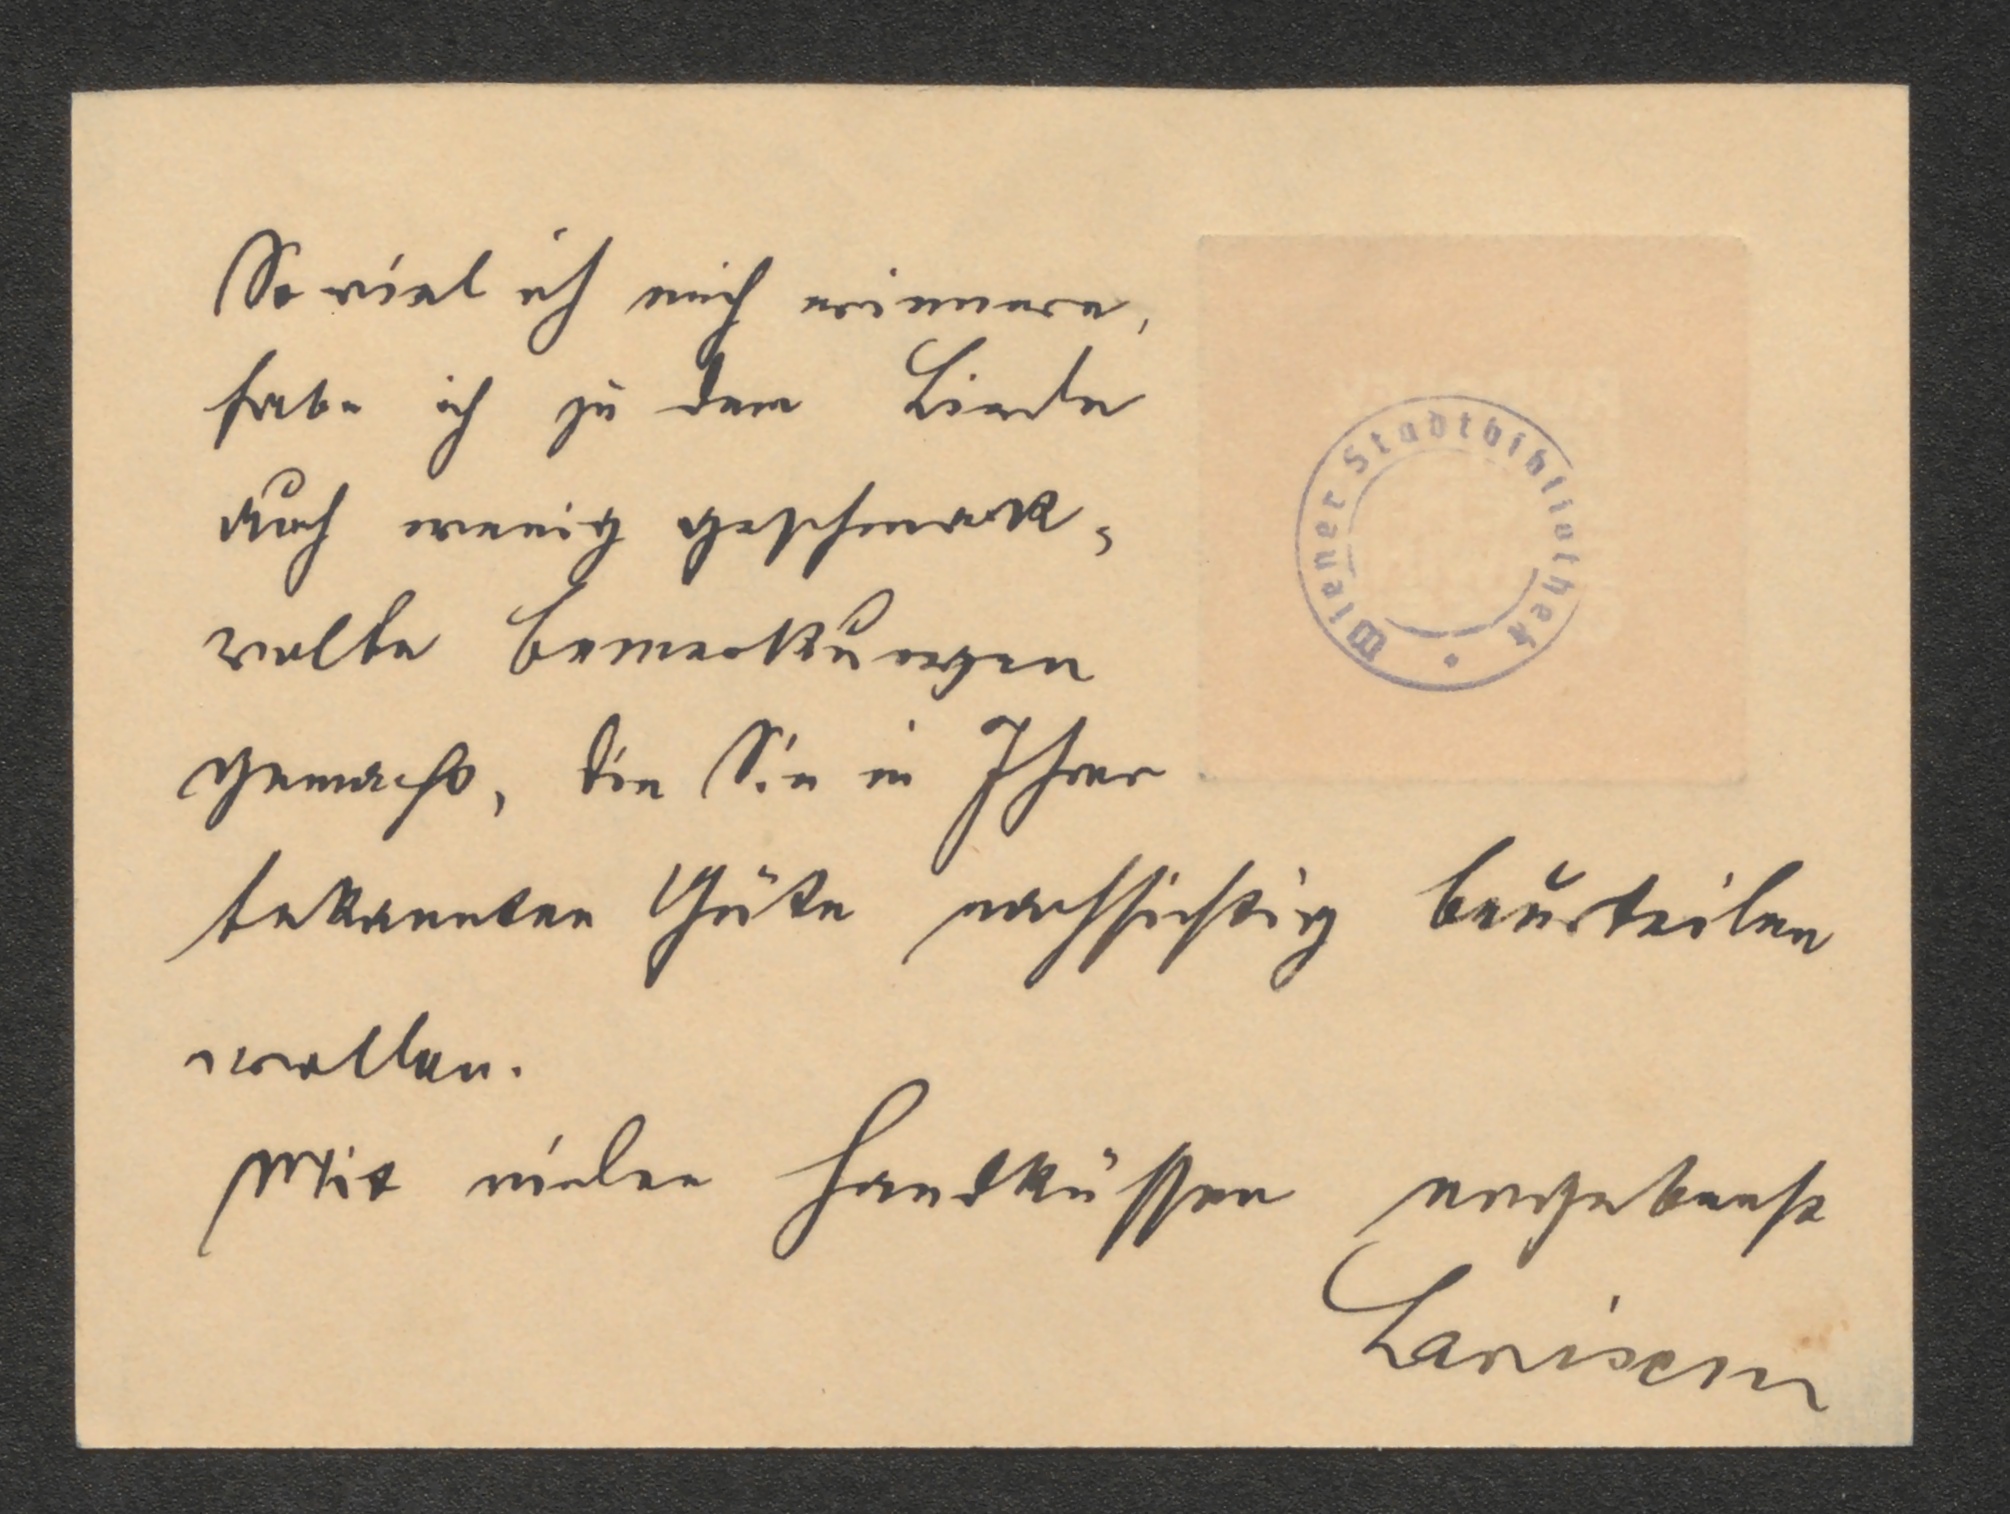 So viel ich mich erinnere,
habe ich zu dem Liede
auch wenig geschmack-
volle Bemerkungen
gemacht, die Sie in Ihrer
bekannten Güte nachsichtig beurteilen
wollen.
Mit vielen Handküssen ergebenst
Wiener Stadtbibliothek